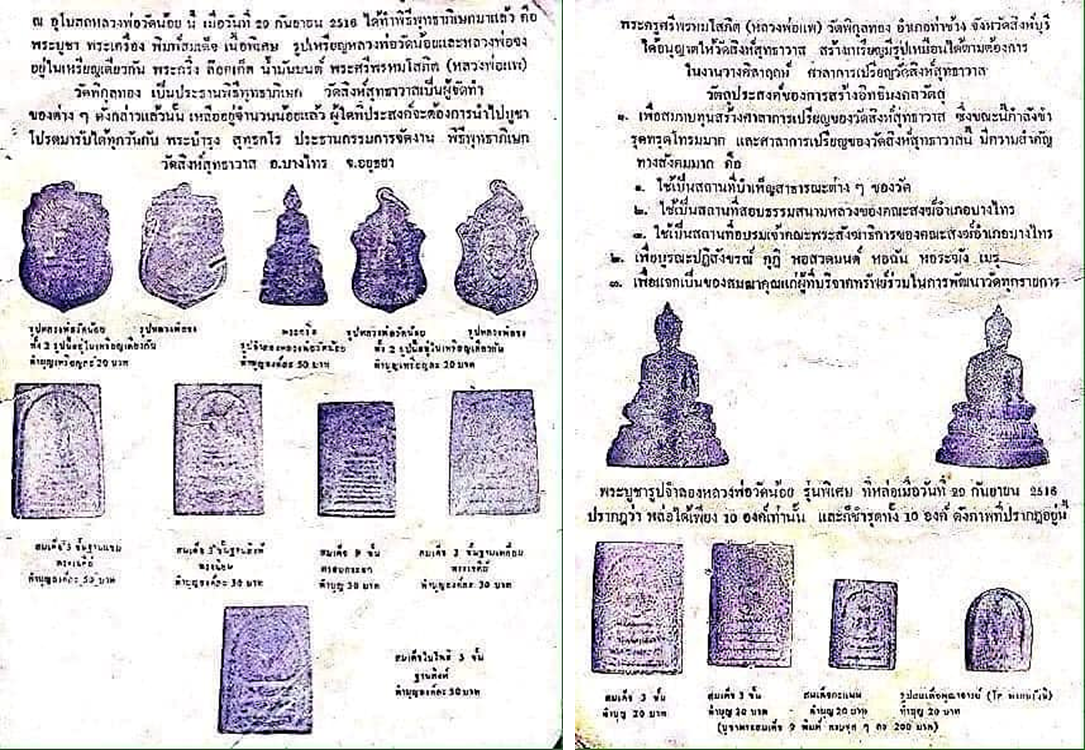 ณ อุโบสถหลวงพ่อวัดน้อย นี้ เมื่อวันที่ 20 กันยายน 2516 ได้ทำพิธีพุทธาภิเษกมาแล้ว คือ
พระบูชา พระเครื่อง พิมพ์สมเด็จ เนื้อพิเศษ รูปเหรียญหลวงพ่อวัดน้อยและหลวงพ่อจง
อยู่ในเหรียญเดียวกัน พระกริ่ง ล๊อกเก็ต น้ำมันมนต์ พระศรีพรหมโสภิต (หลวงพ่อแพ)
วัดพิกุลทอง เป็นประธานพิธีพุทธาภิเษก วัดสิงห์สุทธาวาสเป็นผู้จัดทำ
ของต่าง ๆ ดังกล่าวแล้วนั้น เหลืออยู่จำนวนน้อยแล้ว ผู้ใดที่ประสงค์จะต้องการนำไปบูชา
โปรดมารับได้ทุกวันกับ พระบำรุง สุทธกโร ประธานกรรมการจัดงาน พิธีพุทธาภิเษก
วัดสิงห์สุทธาวาส อ.บางไทร จ.อยุธยา
รูปหลวงพ่อวัดน้อย รูปหลวงพ่อจง
ทั้ง 2 รูปนี้อยู่ในเหรียญเดียวกัน
ทำบุญเหรียญละ 20 บาท
พระกริ่ง
รูปจำลองหลวงพ่อวัดน้อย
ทำบุญองค์ละ 50 บาท
รูปหลวงพ่อวัดน้อย รูปหลวงพ่อจง
ทั้ง 2 รูปนี้อยู่ในเหรียญเดียวกัน
ทำบุญเหรียญละ 20 บาท
สมเด็จ 3 ชั้นฐานแซม
ทรงเจดีย์
ทำบุญองค์ละ 30 บาท
สมเด็จ 3 ชั้นฐานสิงห์
ทำบุญองค์ละ 30 บาท
สมเด็จ 9 ชั้น
ทำบุญ 30 บาท
สมเด็จ 3 ชั้นฐานเหลี่ยม
ทรงเจดีย์
ทำบุญองค์ละ 30 บาท
สมเด็จใบโพธิ์ 3 ชั้น
ฐานสิงห์
ทำบุญองค์ละ 30 บาท
พระครูศรีพรหมโสภิต (หลวงพ่อแพ) วัดพิกุลทอง อำเภอท่าช้าง จังหวัดสิงห์บุรี
ได้อนุญาตให้วัดสิงห์สุทธาวาส สร้างเหรียญมีรูปเหมือนได้ตามต้องการ
ในงานวางศิลาฤกษ์ ศาลาการเปรียญวัดสิงห์สุทธาวาส
วัตถุประสงค์ของการสร้างอิทธิมงคลวัตถุ
๑. เพื่อสมทบทุนสร้างศาลาการเปรียญของวัดสิงห์สุทธาวาส ซึ่งขณะนี้กำลังชำ
รุดทรุดโทรมมาก และศาลาการเปรียญของวัดสิงห์สุทธาวาสนี้ มีความสำคัญ
ทางสังคมมาก คือ
๑. ใช้เป็นสถานที่บำเพ็ญสาธารณะต่าง ๆ ของวัด
๒. ใช้เป็นสถานที่สอบธรรมสนามหลวงของคณะสงฆ์อำเภอบางไทร
๓. ใช้เป็นสถานที่อบรมเจ้าคณะพระสังฆาธิการของคณะสงฆ์อำเภอบางไทร
๒. เพื่อบูรณะปฏิสังขรณ์ กุฏิ หอสวดมนต์ หอฉัน หอระฆัง เมรุ
๓. เพื่อแจกเป็นของสมนาคุณแก่ผู้ที่บริจาคทรัพย์ร่วมในการพัฒนาวัดทุกรายการ
พระบูชารูปจำลองหลวงพ่อวัดน้อย รุ่นพิเศษ ที่หล่อเมื่อวันที่ 20 กันยายน 2516
ปรากฏว่า หล่อได้เพียง 10 องค์เท่านั้น และก็ชำรุดทั้ง 10 องค์ ดังภาพที่ปรากฏอยู่นี้
สมเด็จ 3 ชั้น
ทำบุญ 20 บาท
สมเด็จ 3 ชั้น
ทำบุญ 20 บาท
สมเด็จคะแนน
ทำบุญ 20 บาท
รูปสมเด็จพุฒาจารย์ (โต พรหมรังษี)
ทำบุญ 20 บาท
(บูชาพระสมเด็จ 9 พิมพ์ ครบชุด ๆ ละ 200 บาท)